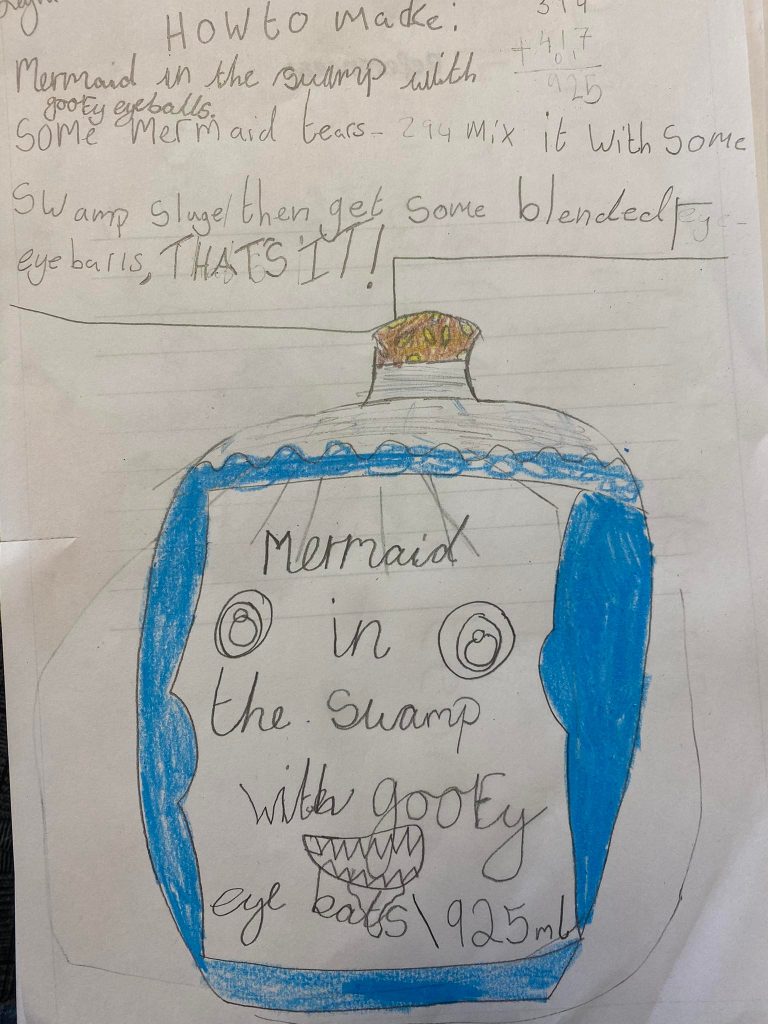 HOW to make:
Mermaid in the swamp with
gooty eyeballs.
+ 417
925
Some Mermaid tears - 294 Mix it with Some
Swamp Sluge/then get some blended eye-
eyeballs, THAT'S IT!
Mermaid
in
the Swamp
with gooty
eye balls\925ml